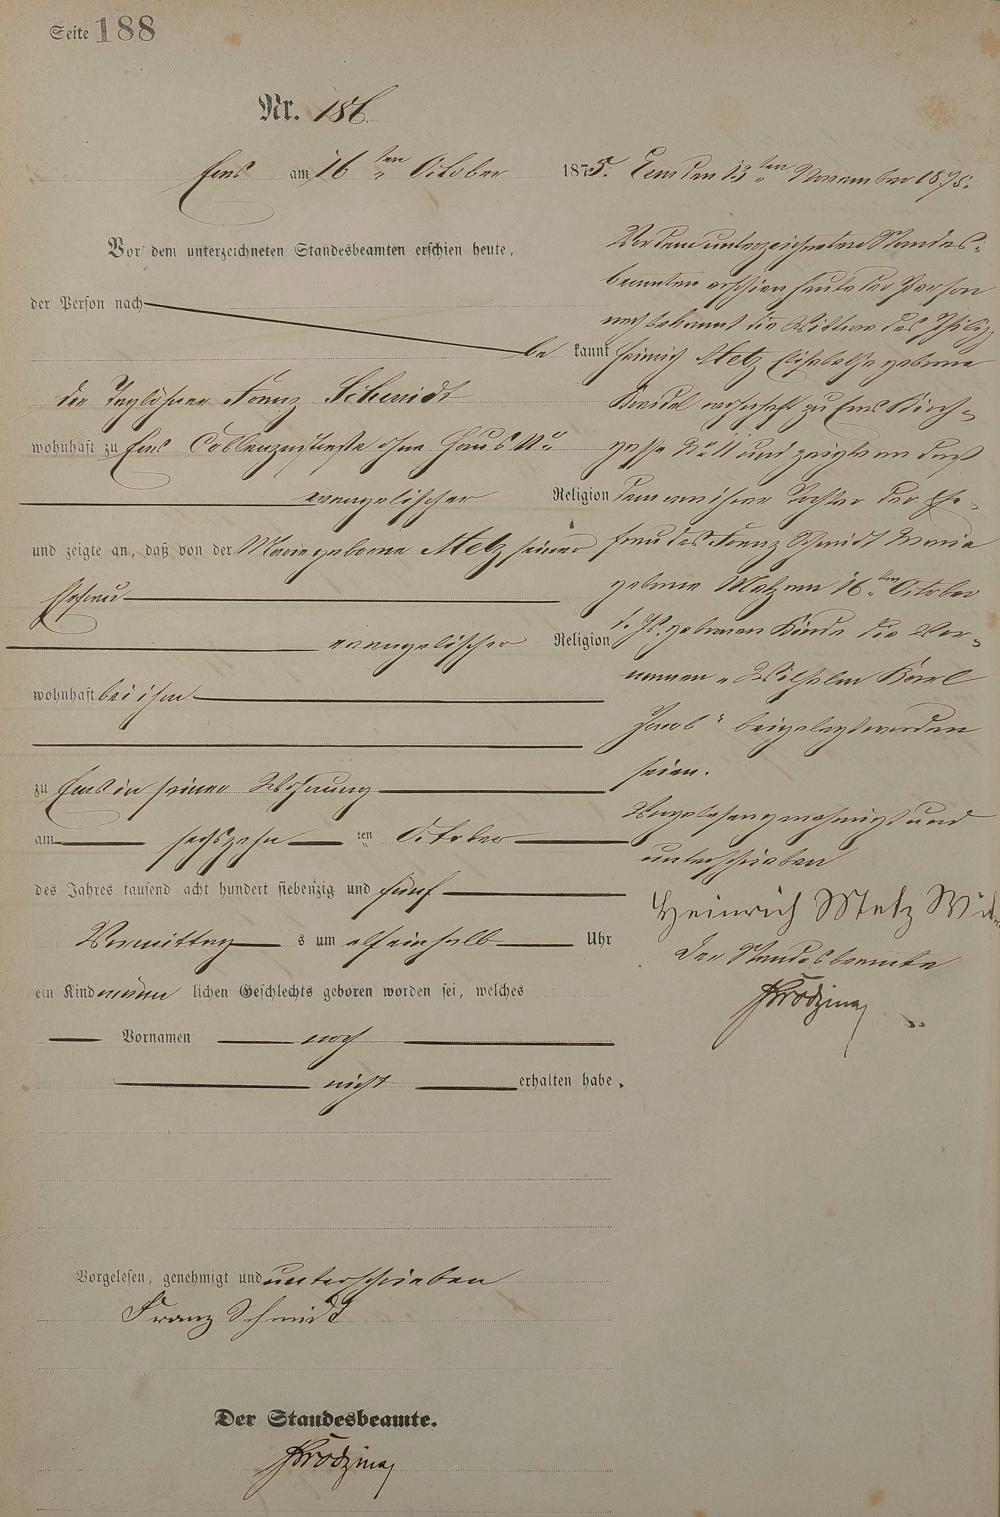 Seite 188
Nr. 186.
Ems am 16ten October 1875.
Vor dem unterzeichneten Standesbeamten erschien heute,
der Person nach
be kannt
der Taglöhner Franz Schmidt
wohnhaft zu Ems Coblenzerstraße ohne Haus No
evangelischer Religion
und zeigte an, daß von der Marie geborne Metz seiner
Ehefrau
evangelischer Religion
wohnhaft bei ihm
zu Ems in seiner Wohnung
am sechszehn ten October
des Jahres tausend acht hundert siebenzig und fünf
Vormittag s um elf einhalb Uhr
ein Kind männ lichen Geschlechts geboren worden sei, welches
Vornamen noch
nicht erhalten habe.
Vorgelesen, genehmigt und unterschrieben
Franz Schmidt
Der Standesbeamte.
Ems den 13ten November 1875.
Vor dem unterzeichneten Standes-
beamten erschien heute der Person
nach bekannt die Wittwe des Philipp
Heinrich Metz Elisabethe geborne
wohnhaft zu Ems Kirch-
gasse No 11 und zeigte an daß
dem von ihrer Tochter der Ehe-
frau des Franz Schmidt Marie
geborne Metz am 16ten October
d. Js. geborenen Kinde die Vor-
namen „Wilhelm Karl
Jacob“ beigelegt worden
seien.
Vorgelesen genehmigt und
unterschrieben
Heinrich Metz
Der Standesbeamte